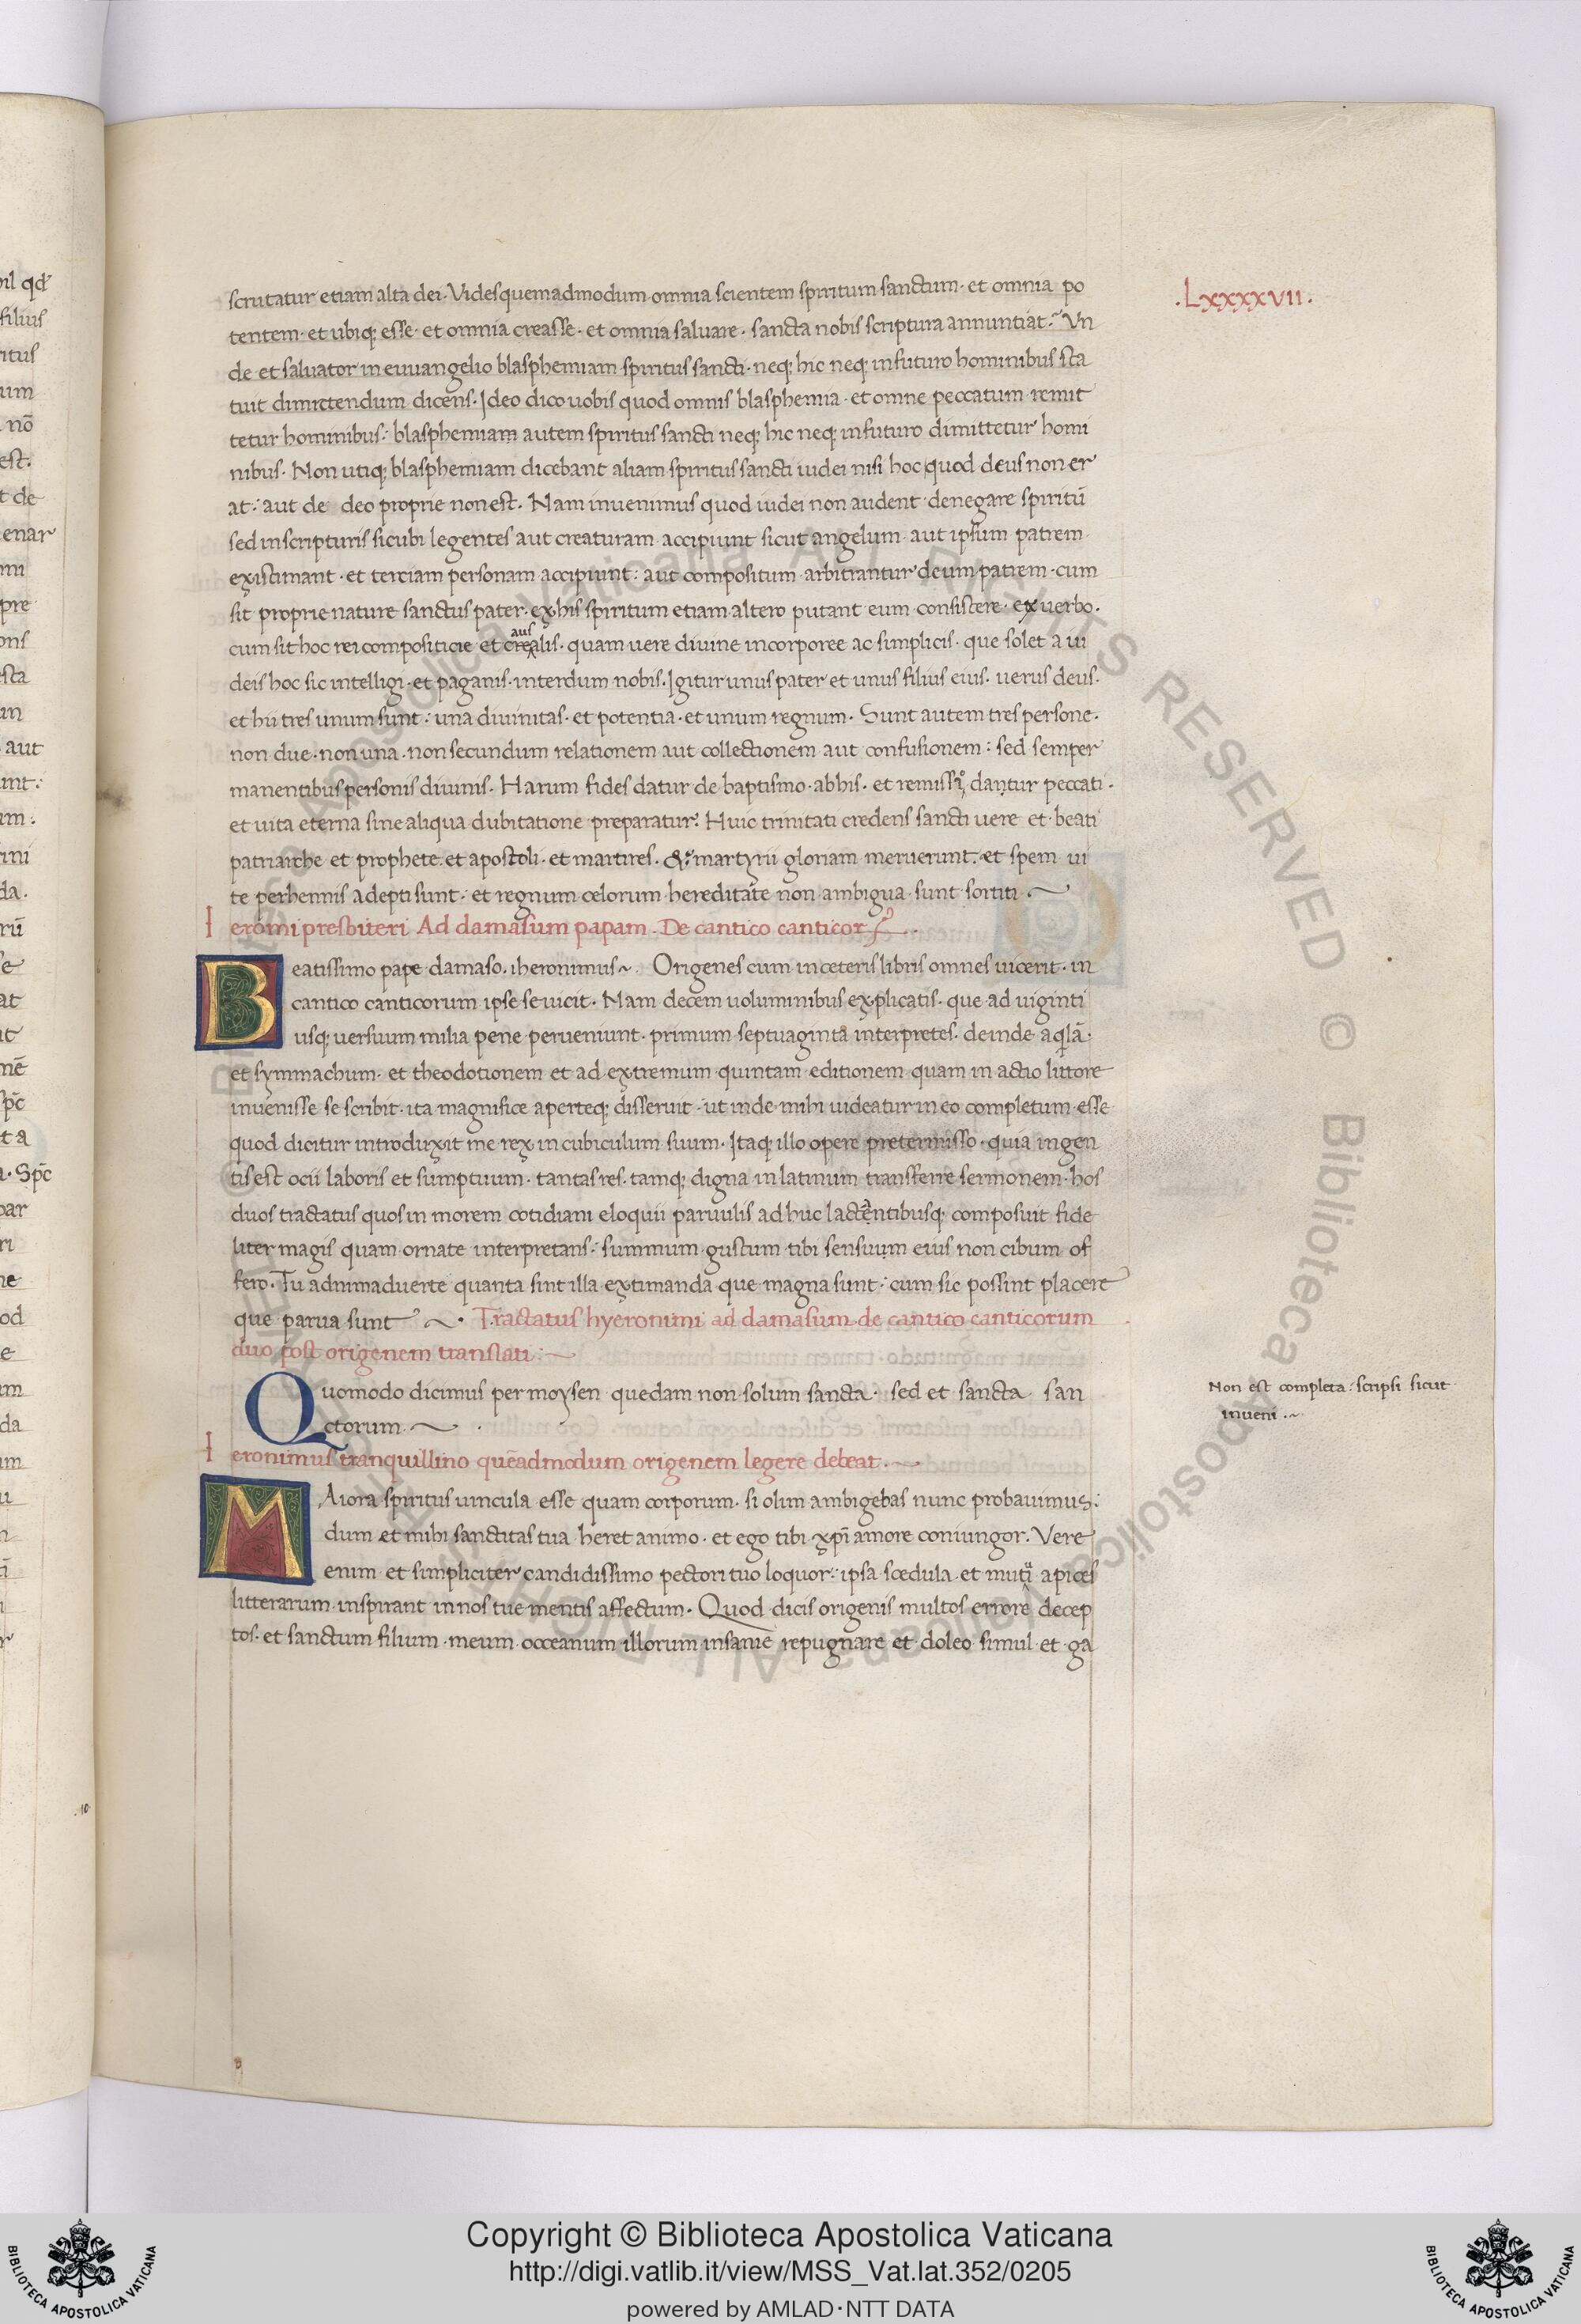 .Lxxxxvii.
scrutatur etiam alta dei. Vides quemadmodum omnia scientem spiritum sanctum. et omnia po
tentem. et ubiq; esse. et omnia creasse. et omnia saluare. sancta nobis scriptura annuntiat. Vn
de et saluator in euuangelio blasphemiam spiritus sancti. neq; hic neq; in futuro hominibus sta
tuit dimittendum dicens. Ideo dico uobis quod omnis blasphemia. et omne peccatum remit
tetur hominibus: blasphemiam autem spiritus sancti neq; hic neq; in futuro dimittetur homi
nibus. Non utiq; blasphemiam dicebant aliam spiritus sancti iudei nisi hoc quod deus non er
at: aut de deo proprie non est. Nam inuenimus quod iudei non audent denegare spiritū
sed in scripturis sicubi legentes aut creaturam accipiunt sicut angelum aut ipsum patrem
existimant. et terciam personam accipiunt: aut compositum arbitrantur deum patrem. cum
sit proprie nature sanctus pater. ex his spiritum etiam altero putant eum consistere. ex uerbo.
cum sit hoc rei compositicie et crealis. quam uere diuine incorporee ac simplicis. que solet a iu
deis hoc sic intelligi. et paganis. interdum nobis. Igitur unus pater et unus filius eius. uerus deus.
et hii tres unum sunt: una diuinitas. et potentia. et unum regnum. Sunt autem tres persone.
non due. non una. non secundum relationem aut collectionem aut confusionem: sed semper
manentibus personis diuinis. Harum fides datur de baptismo. ab his. et dantur peccati.
et uita eterna sine aliqua dubitatione preparatur. Huic trinitati credens sancti uere et beati
patriarche et prophete. et apostoli. et martires. & martyrii gloriam meruerunt. et spem ui
te perhennis adepti sunt: et regnum celorum hereditate non ambigua sunt sortiti.
Ieromi presbiteri Ad damasum papam. De cantico canticor
Beatissimo pape damaso. iheronimus. Origenes cum in ceteris libris omnes uicerit. in
cantico canticorum ipse se uicit. Nam decem uoluminibus explicatis. que ad uiginti
usq; uersuum milia pene perueniunt. primum septuaginta interpretes. deinde aqlā.
et symmachum. et theodotionem et ad extremum quintam editionem quam in actio littore
inuenisse se scribit. ita magnifice aperteq; disseruit. ut inde mihi uideatur in eo completum esse
quod dicitur introduxit me rex in cubiculum suum. Itaq; illo opere pretermisso. quia ingen
tis est ocii laboris et sumptuum. tantas res. tamq; digna in latinum transferre sermonem. hos
duos tractatus quos in morem cotidiani eloquii paruulis ad huc lactentibusq; composuit fide
liter magis quam ornate interpretans: summum gustum tibi sensuum eius non cibum of
fero. Tu adnimaduerte quanta sint illa extimanda que magna sunt: cum sic possint placere
que parua sunt. Tractatus hyeronimi ad damasum de cantico canticorum
duo post origenem translati:
Quomodo dicimus per moysen quedam non solum sancta. sed et sancta san
ctorum
Non est completa: scripsi sicut
inueni.
Ieronimus tranquillino quēadmodum origenem legere debeat.
MAiora spiritus uincula esse quam corporum. si olim ambigebas nunc probauimus:
dum et mihi sanctitas tua heret animo. et ego tibi xpī amore coniungor. Vere
enim et simpliciter candidissimo pectori tuo loquor: ipsa scedula et muti apices
litterarum inspirant in nos tue mentis affectum. Quod dicis origenis multos errore decep
tos. et sanctum filium meum occeanum illorum insanie repugnare et doleo simul et ga
Copyright © Biblioteca Apostolica Vaticana
http://digi.vatlib.it/view/MSS_Vat.lat.352/0205
powered by AMLAD·NTT DATA
BIBLIOTECA APOSTOLICA VATICANA
BIBLIOTECA APOSTOLICA VATICANA